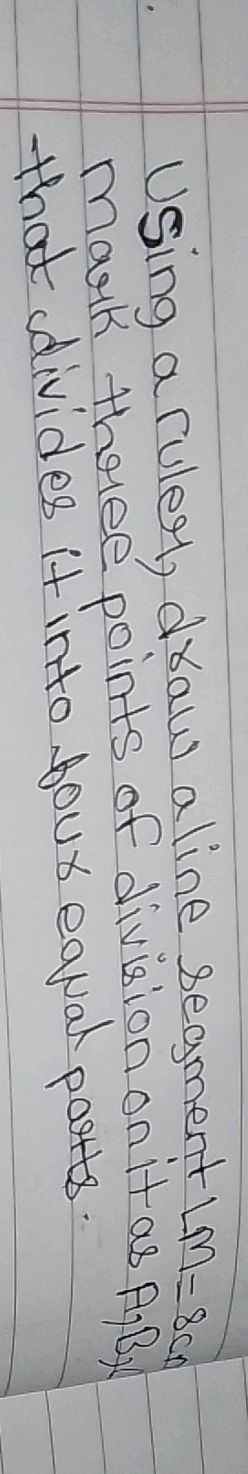 Using a ruler, draw a line segment LM = 8cm
mark three points of division on it as A, B,
that divides it into four equal parts.